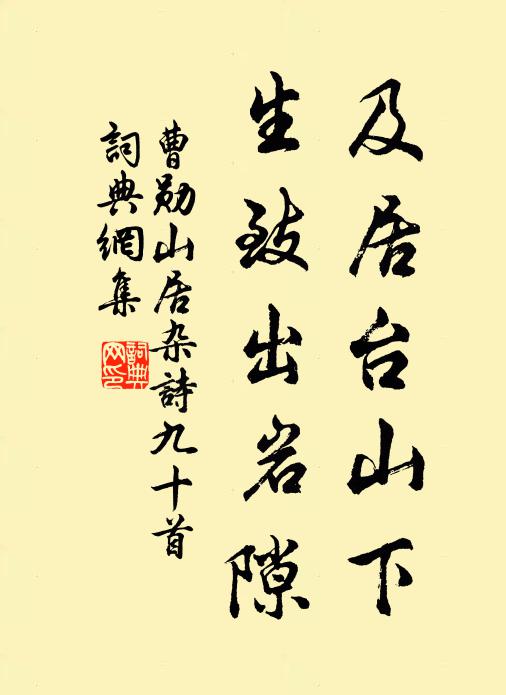 及居台山下
生致出岩隙
曹勋山居杂詩九十首
詞典網集
詞典
网印